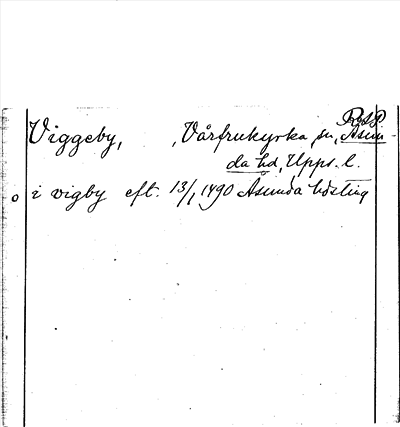 Viggeby, Vårfrukyrka sn, Åsun-
da hd, Upps. l.
o i vigby eft. 13/1 1490 Åsunda hdsting